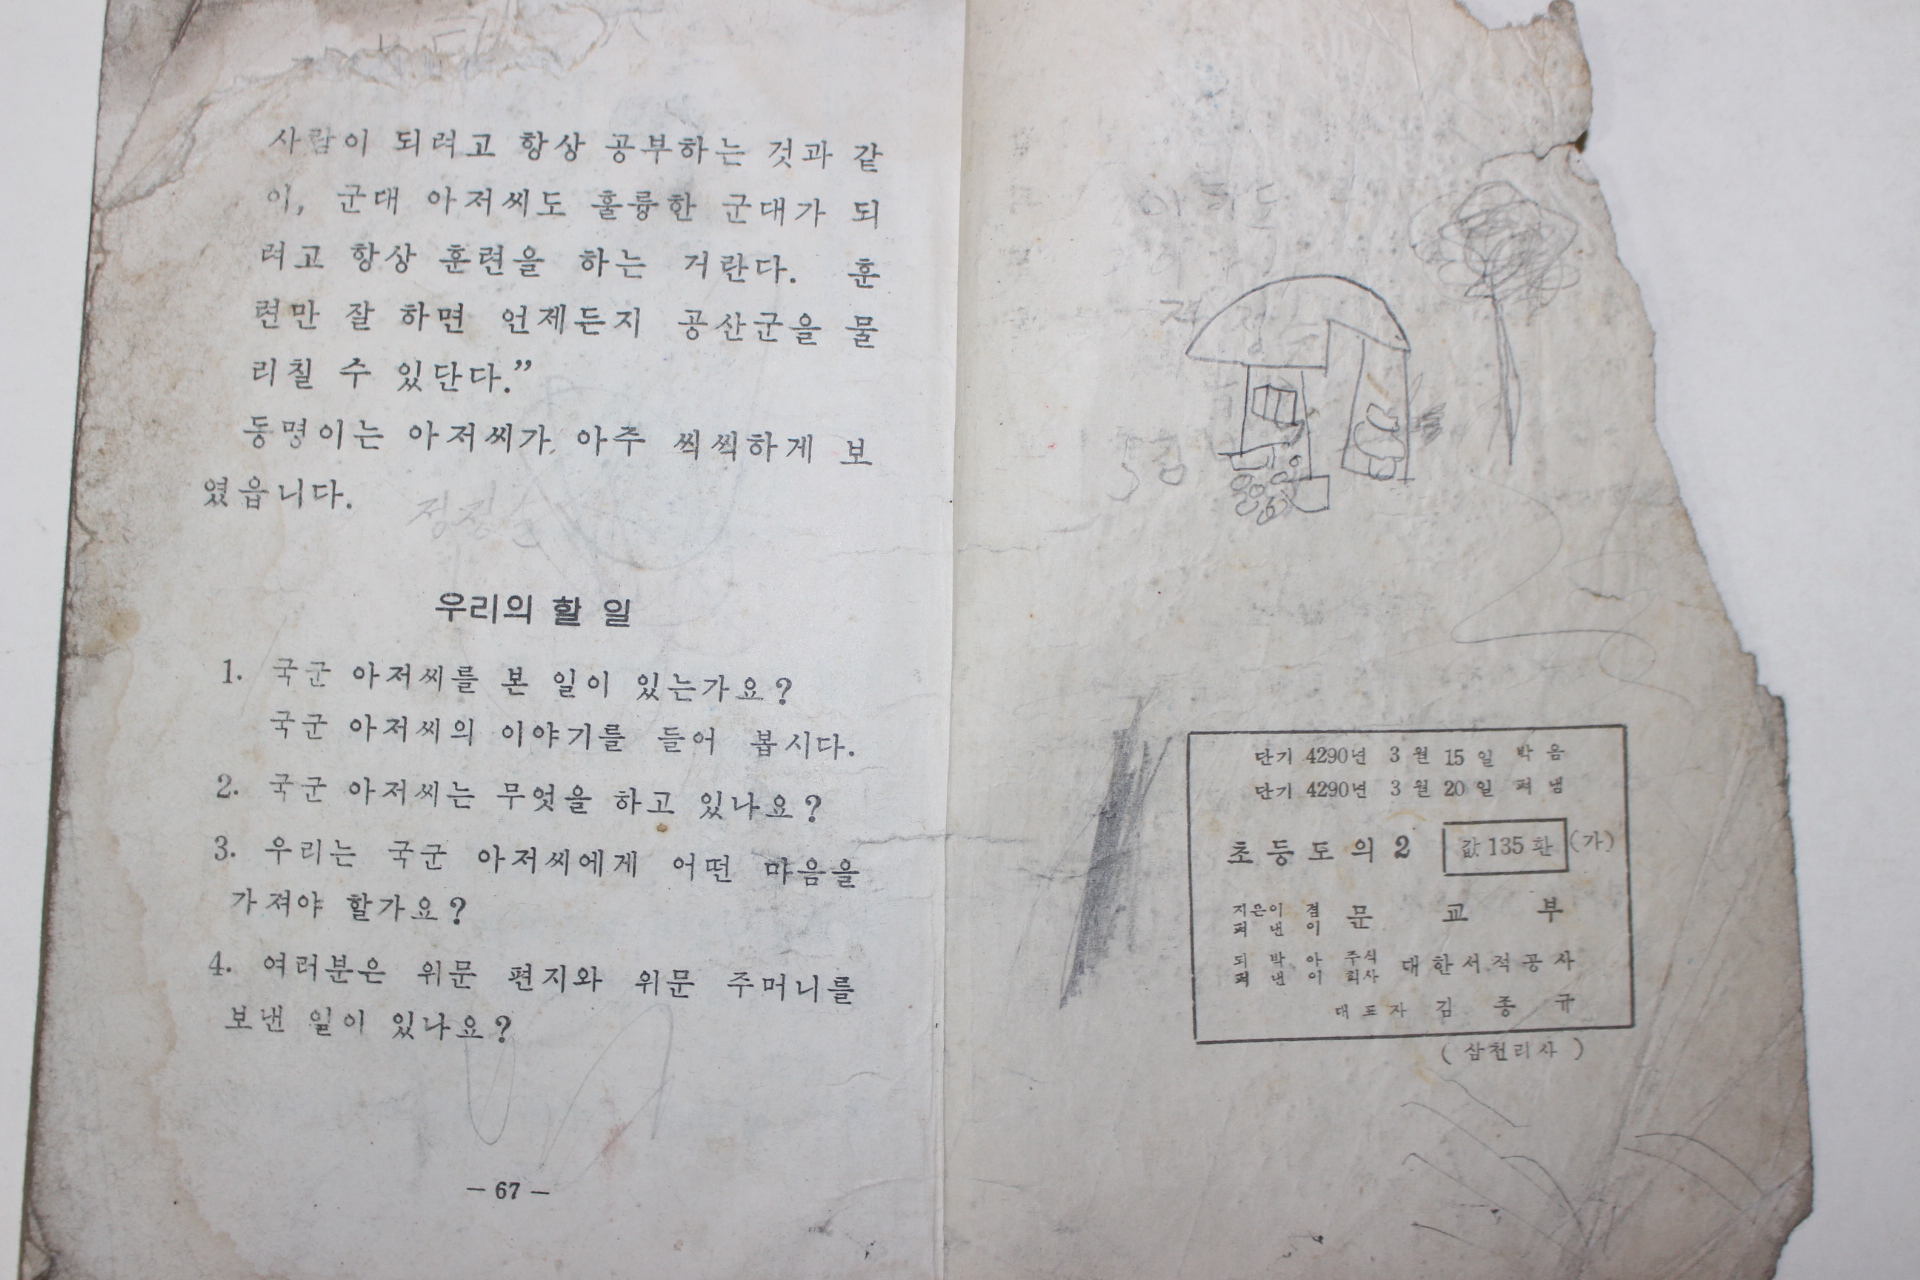 사람이 되려고 항상 공부하는 것과 같
이, 군대 아저씨도 훌륭한 군대가 되
려고 항상 훈련을 하는 거란다. 훈
련만 잘 하면 언제든지 공산군을 물
리칠 수 있단다.”
동명이는 아저씨가 아주 씩씩하게 보
였읍니다.
우리의 할 일
1. 국군 아저씨를 본 일이 있는가요?
국군 아저씨의 이야기를 들어 봅시다.
2. 국군 아저씨는 무엇을 하고 있나요?
3. 우리는 국군 아저씨에게 어떤 마음을
가져야 할가요?
4. 여러분은 위문 편지와 위문 주머니를
보낸 일이 있나요?
— 67 —
단기 4290년 3 월 15 일 박음
단기 4290년 3 월 20 일 펴냄
초등도의 2 값 135 환 (가)
지은이 겸
펴 낸 이 문 교 부
되 박 아 주식
펴 낸 이 회사 대한서적공사
대표자 김 종 규
( 삼천리사 )